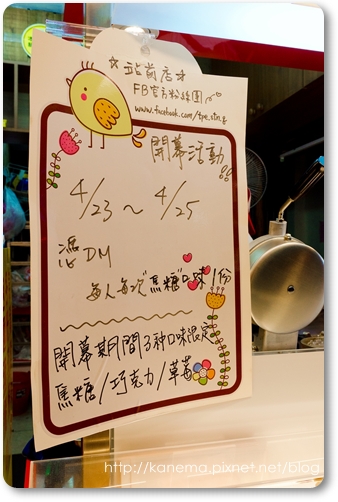 ☆站前店☆
FB官方粉絲團
開幕活動
4/23 ~ 4/25
憑DM
每人每次"焦糖"口味1份
開幕期間3種口味限定
焦糖/巧克力/草莓
http://kanema.pixnet.net/blog